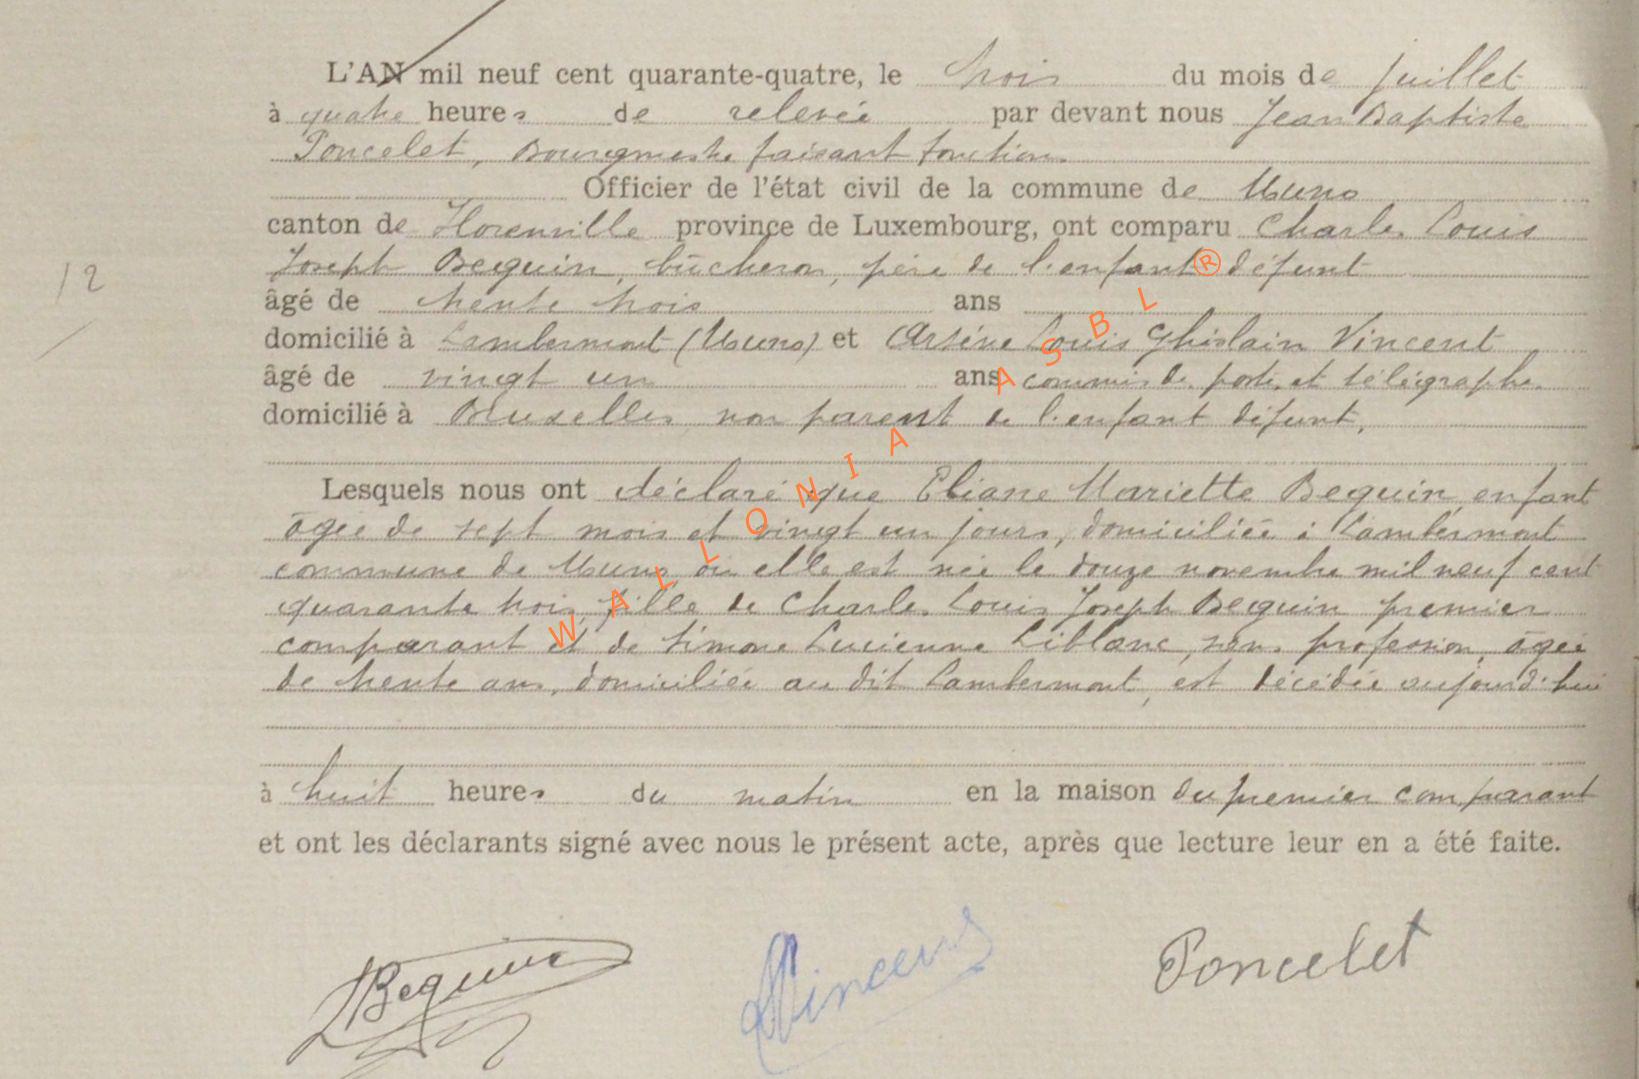 L'AN mil neuf cent quarante-quatre, le trois du mois de juillet
à quatre heures de relevée par devant nous Jean Baptiste
Poncelet, Bourgmestre faisant fonction.
Officier de l'état civil de la commune de Muno
canton de Florenville province de Luxembourg, ont comparu Charles Louis
Joseph Bequin, bûcheron, père de l'enfant défunt
âgé de trente trois ans
12
domicilié à Lambermont (Muno) et Arsène Louis Ghislain Vincent
âgé de vingt un ans commis des postes et télégraphes
domicilié à Bruxelles non parent de l'enfant défunt.
Lesquels nous ont déclaré que Eliane Mariette Bequin, enfant
âgée de sept mois et vingt un jours, domiciliée à Lambermont
commune de Muno où elle est née le douze novembre mil neuf cent
quarante trois, fille de Charles Louis Joseph Bequin premier
comparant et de Simone Lucienne Leblanc, sans profession, âgée
de trente ans, domiciliée au dit Lambermont, est décédée aujourd'hui
à huit heures du matin en la maison du premier comparant
et ont les déclarants signé avec nous le présent acte, après que lecture leur en a été faite.
Bequin Vincent Poncelet
WALLONIA ASBL ®